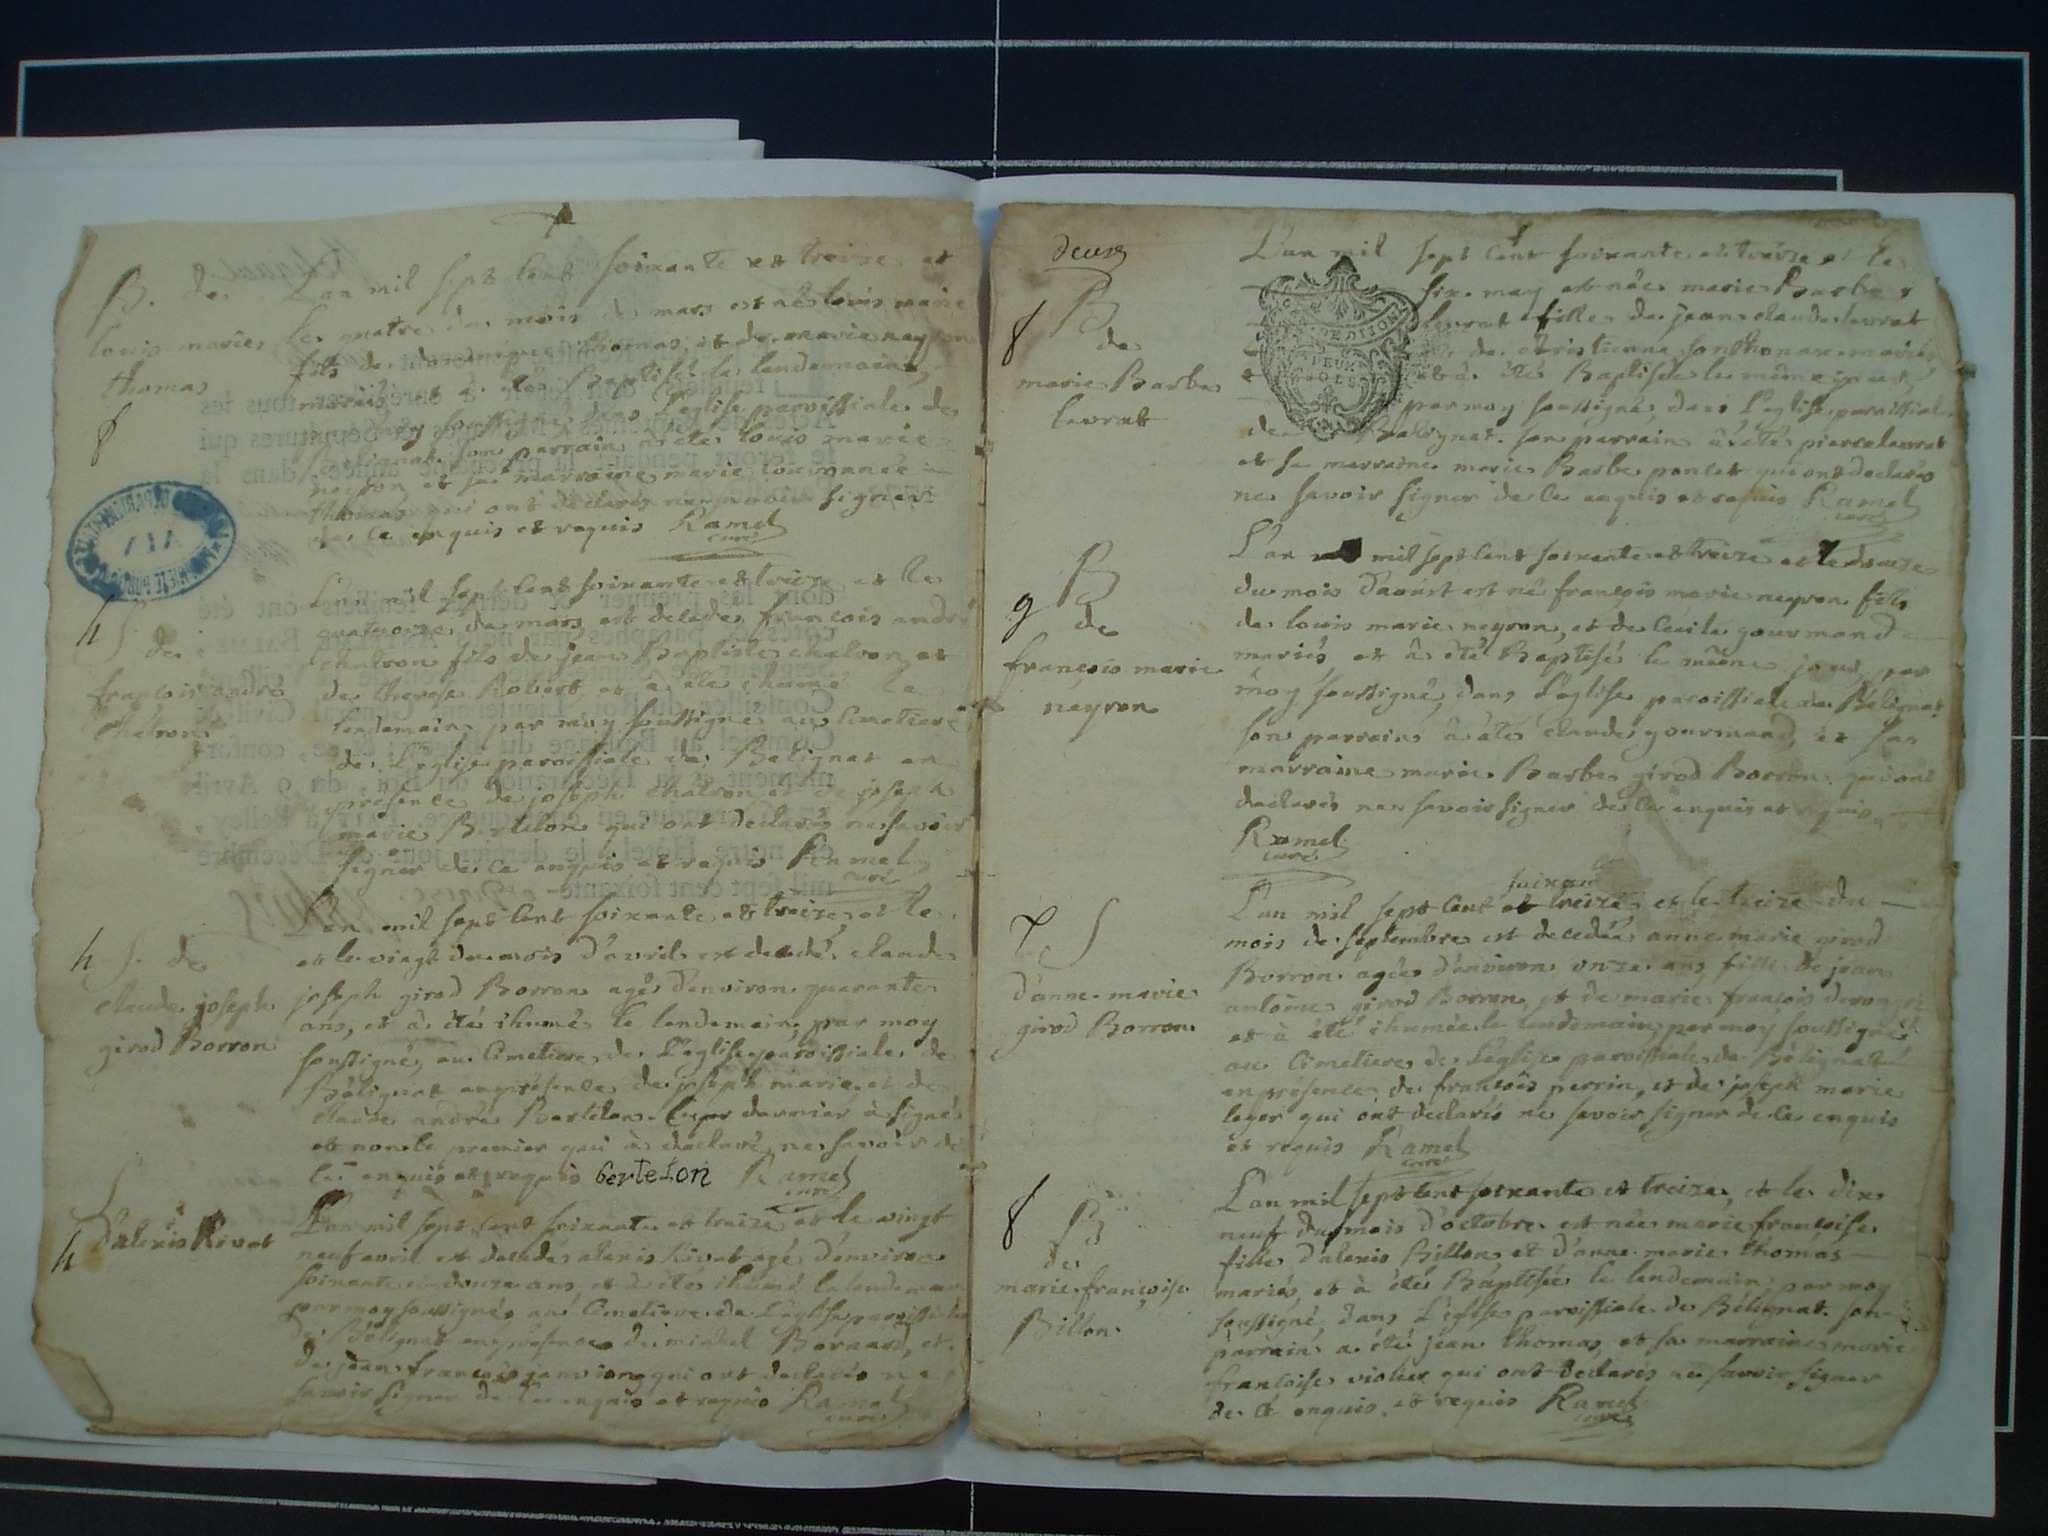 B. de
louis marie
thomas
L'an mil sept cent soixante et treize et
le quatre du mois de mars est né louis marie
fils de dominique thomas et de marie neyron
mariés et a été Baptisé le lendemain
par moy soussigné dans L'eglise paroissiale de
Belignat son parrain a été louis marie
neyron et sa marraine marie
thomas qui ont declarés ne savoir signer
de ce enquis et requis Ramel
curé
S.
de
françois andré
chatron
L'an mil sept cent soixante et treize et le
quatorze de mars est decedé françois andré
chatron fils de jean Baptiste chatron et
de therese Robert et a été ihumé le
lendemain par moy soussigné au Cimetiere
de L'eglise paroissiale de Belignat en
presence de joseph chatron et de joseph
marie Bertelon qui ont declarés ne savoir
signer de ce enquis et requis Ramel
curé
S. de
claude joseph
girod Borron
L'an mil sept cent soixante et treize et le
et le vingt du mois d'avril est decedé claude
joseph girod Borron agé d'environ quarante
ans, et à été ihumé le lendemain par moy
soussigné au Cimetiere de L'eglise paroissiale de
Bélignat en présence de joseph marie et de
claude andré Bertelon. le dernier à signé
et non le premier qui à declaré ne savoir de
ce enquis et requis bertelon Ramel
curé
S
d'alexis Rivat
L'an mil sept cent soixante et treize et le vingt
neuf avril est decedé alexis Rivat agé d'environ
soixante et douze ans, et à été ihumé le lendemain
par moy soussigné au Cimetiere de L'eglise paroissiale
de Bélignat en présence de michel Bornard, et
de jean françois janvion qui ont declarés ne
savoir signer de ce enquis et requis Ramel
curé
deux
8 B
de
marie Barbe
levrat
L'an mil sept cent soixante et treize et le
six may est née marie Barbe
levrat fille de jean claude levrat
et de christienne sonthonax mariés
et à été Baptisée le même jour
par moy soussigné, dans L'eglise paroissiale
de Belignat. son parrain à été pierre levrat
et sa marraine marie Barbe poncet qui ont declarés
ne savoir signer de ce enquis et requis Ramel
curé
9 B
de
françois marie
neyron
L'an mil sept cent soixante et treize et le douze
du mois d'aoust est né françois marie neyron fils
de louis marie neyron, et de Cecile gourmand
mariés, et à été Baptisé le même jour par
moy soussigné, dans L'eglise paroissiale de Bélignat
son parrain à été claude gourmand, et sa
marraine marie Barbe girod Borron qui ont
declarés ne savoir signer de ce enquis et requis
Ramel
curé
S
d'anne marie
girod Borron
soixan
L'an mil sept cent et treize et le treize du
mois de septembre est decedée anne marie girod
Borron agée d'environ onze ans, fille de jean
antoine girod Borron, et de marie françois
et à été ihumée le lendemain par moy soussigné
au Cimetiere de L'eglise paroissiale de Bélignat
en présence de françois perrin, et de joseph marie
leger qui ont declarés ne savoir signer de ce enquis
et requis Ramel
curé
8 B
de
marie françoise
Billon
L'an mil sept cent soixante et treize, et le dix
neuf du mois d'octobre est née marie françoise
fille d'alexis Billon, et d'anne marie thomas
mariés, et à été Baptisée le lendemain par moy
soussigné, dans L'eglise paroissiale de Bélignat. son
parrain a été jean thomas, et sa marraine marie
françoise violier qui ont declarés ne savoir signer
de ce enquis et requis Ramel
curé